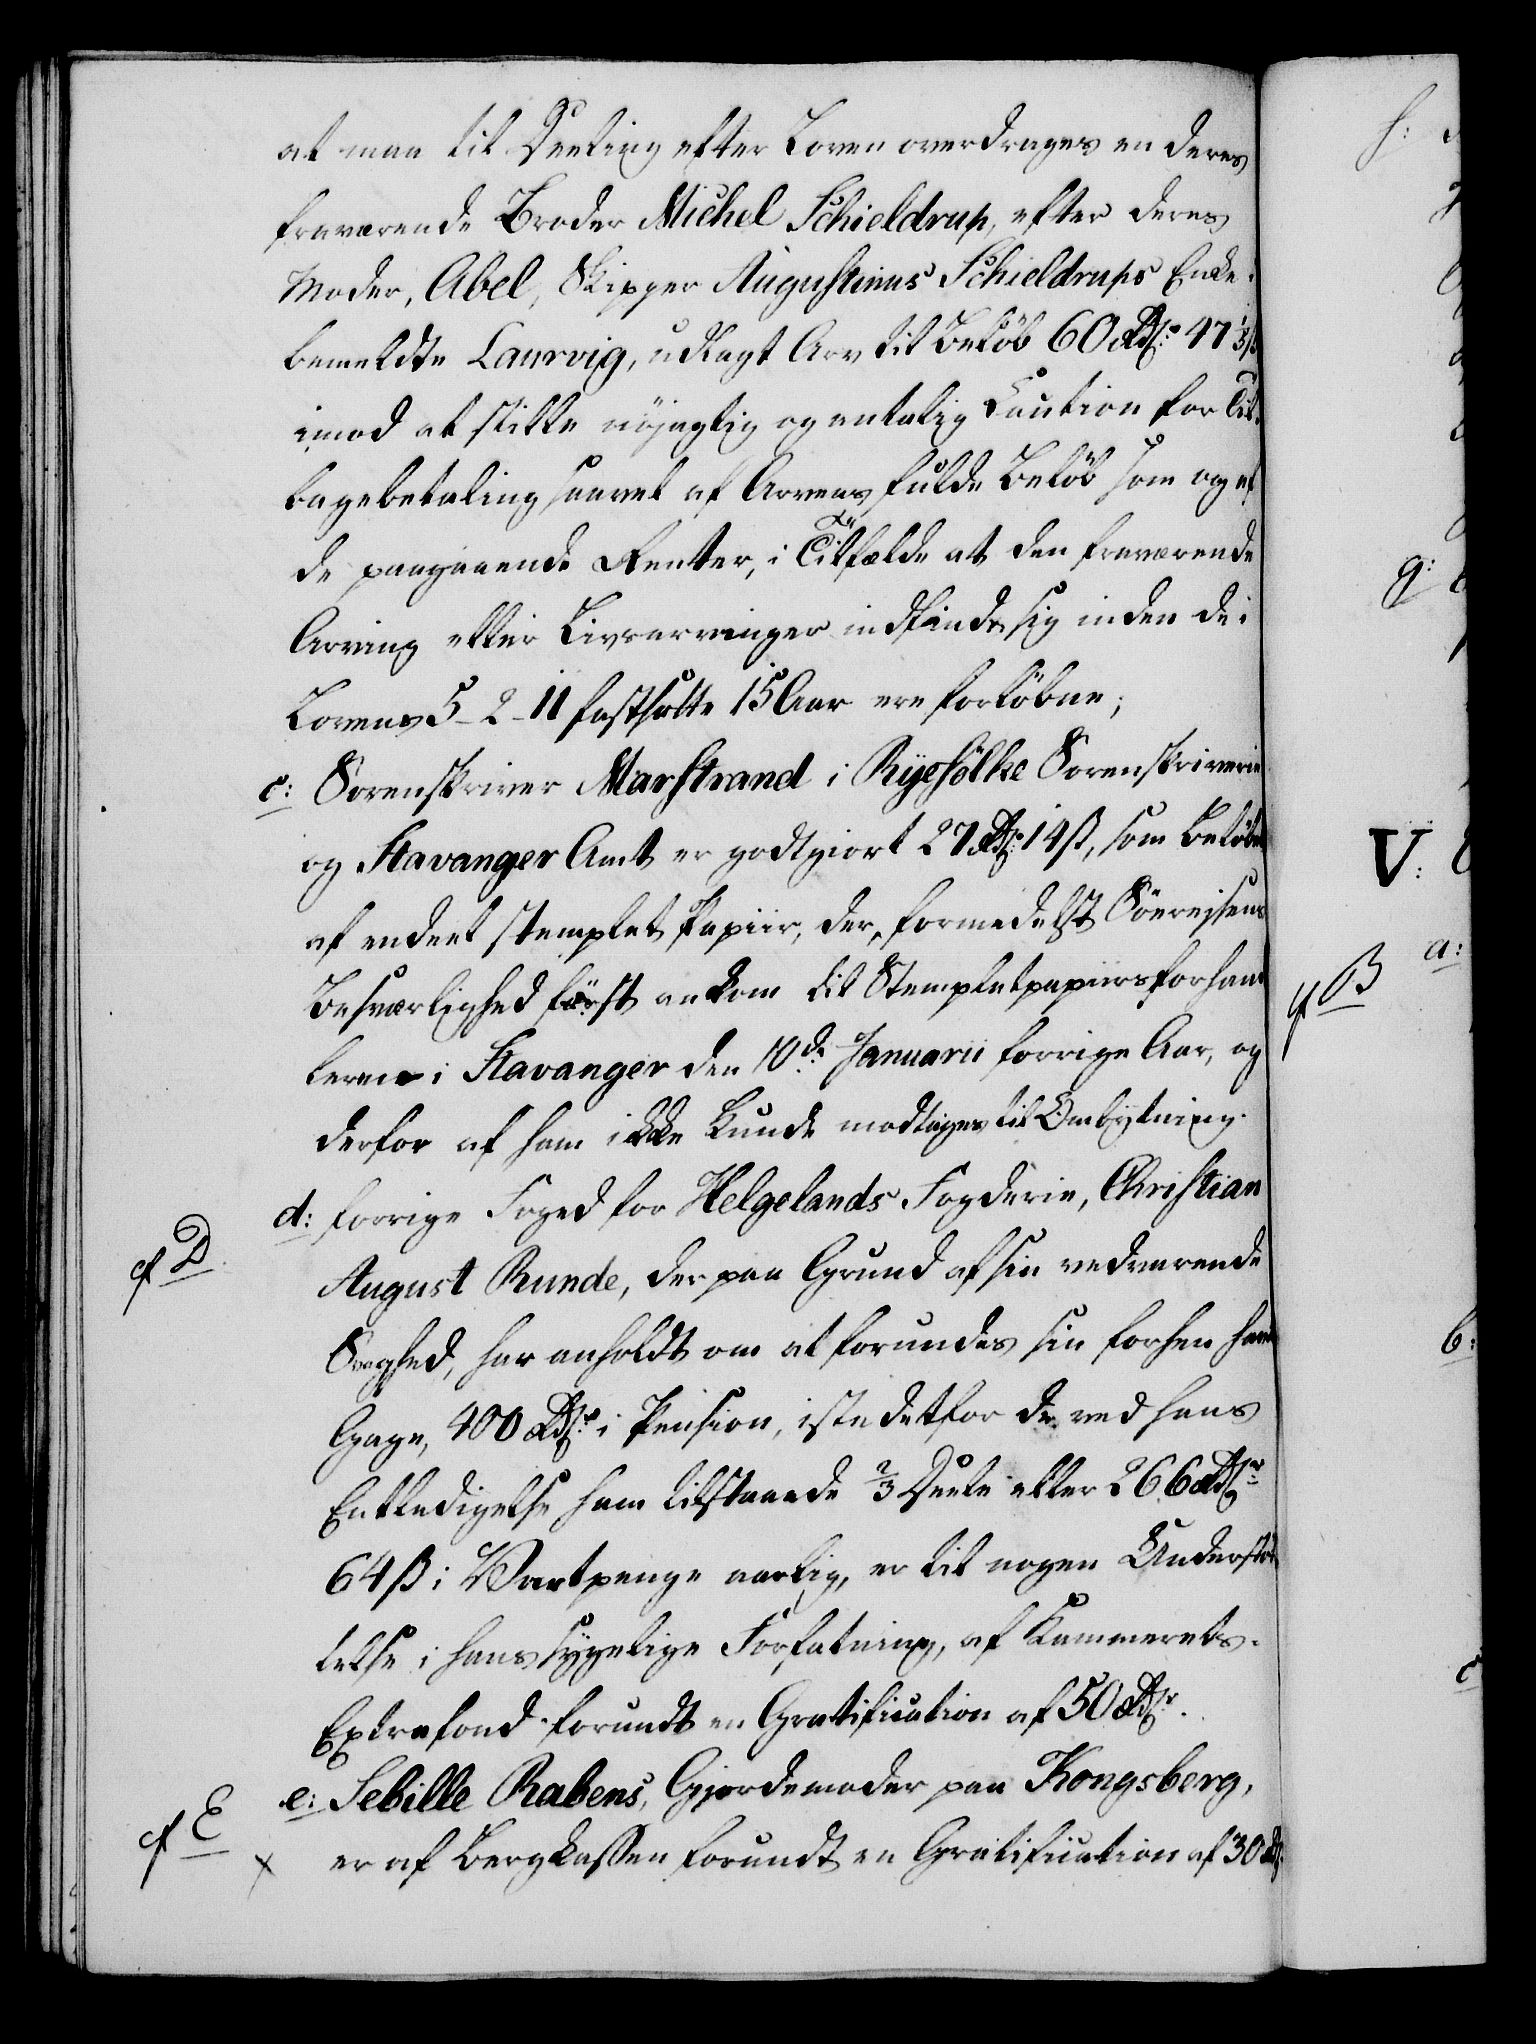 at maa til Deeling efter Loven overdrages en deres
fraværende Broder Michel Schieldrup, efter deres
Moder, Abel, Skipper Augustinus Schieldrups Enke i
bemeldte Laurvig, udlagt Arv til Beløb 60 Rdlr 47 1/3 ß
imod at stille nöjagtig og antalig Caution for Til-
bagebetaling saavel af Arvens fulde Belöb som og af
de paagaaende Renter, i Tilfælde at den fraværende
Arving eller Livsarvinger indfinde sig inden de i
Lovens 5-2-11 fastsatte 15 Aar ere forlöbne;
c: Sorenskriver Marstrand i Ryefölke Sorenskriverie
og Stavanger Amt er godtgiort 27 Rdlr 14 ß, som Belöbet
af endeel stemplet Papiir, der, formedelst Söereisens
Besværlighed först ankom til Stempletpapiirsforhand-
leren i Stavanger den 10de Januarii forrige Aar, og
derfor af ham ikke kunde modtages til Ombytning.
d: forrige Foged for Helgelands Fogderie, Christian
cf D.
August Runde, der paa Grund af sin vedvarende
Svaghed, har anholdt om at forundes sin forhen havte
Gage, 400 Rdlr i Pension, istedetfor de ved hans
Entledigelse ham tilstaaede 2/3 Deele eller 266 Rdlr
64 ß i Vartpenge aarlig, er til nogen Understöt-
telse i hans sygelige Forfatning, af Kammerets
Extrafond forundt en Gratification af 50 Rdlr.
e: Sebille Rabens, Gjordemoder paa Kongsberg,
cf E
x er af Bergkassen forundt en Gratification af 30 Rdlr
h:
g:
V:
cf B
a:
b:
c